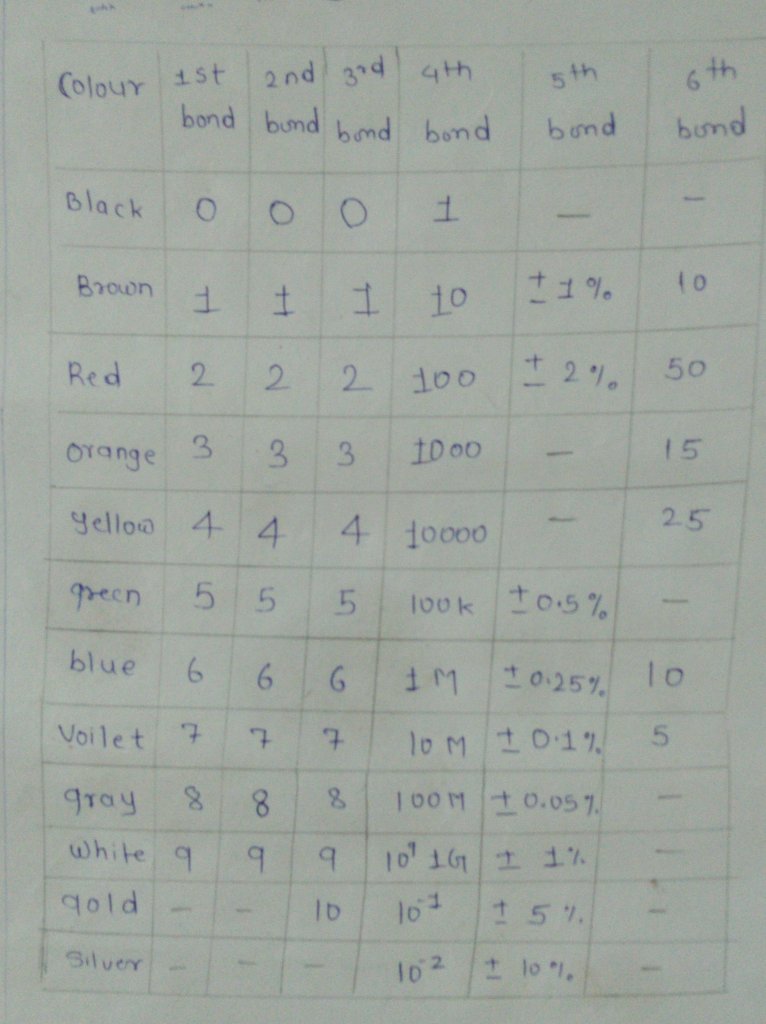 Colour 1st bond 2nd bond 3rd bond 4th bond 5th bond 6th bond
Black 0 0 0 1 — —
Brown 1 1 1 10 ± 1% 10
Red 2 2 2 100 ± 2% 50
orange 3 3 3 1000 — 15
yellow 4 4 4 10000 — 25
green 5 5 5 100k ± 0.5% —
blue 6 6 6 1M ± 0.25% 10
Voilet 7 7 7 10M ± 0.1% 5
gray 8 8 8 100M ± 0.05% —
White 9 9 9 10⁹ 1G ± 1% —
gold — — 10 10⁻¹ ± 5% —
Silver — — — 10⁻² ± 10% —